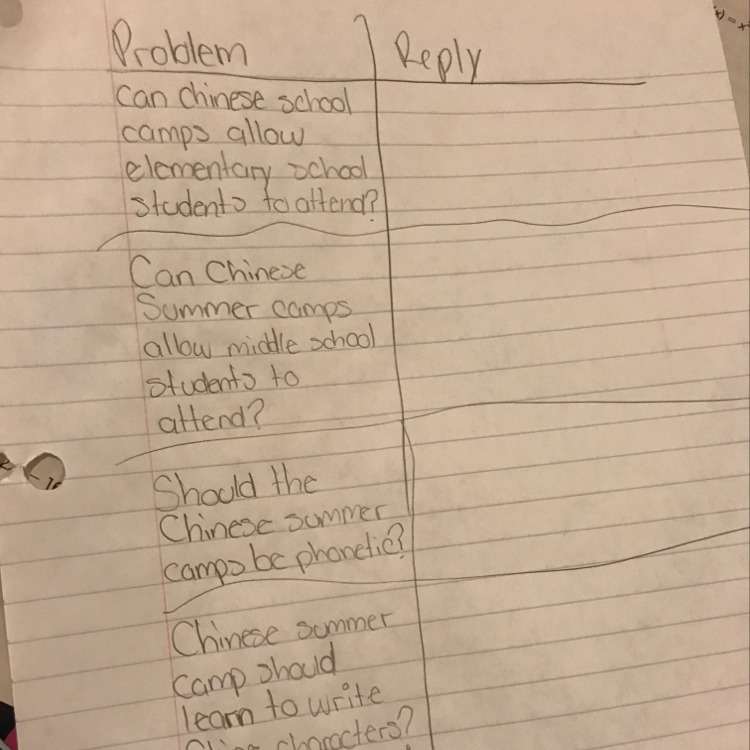 Problem
Reply
Can Chinese school
camps allow
elementary school
students to attend?
Can Chinese
Summer camps
allow middle school
students to
attend?
Should the
Chinese summer
camps be phonetic?
Chinese summer
camp should
learn to write
characters?